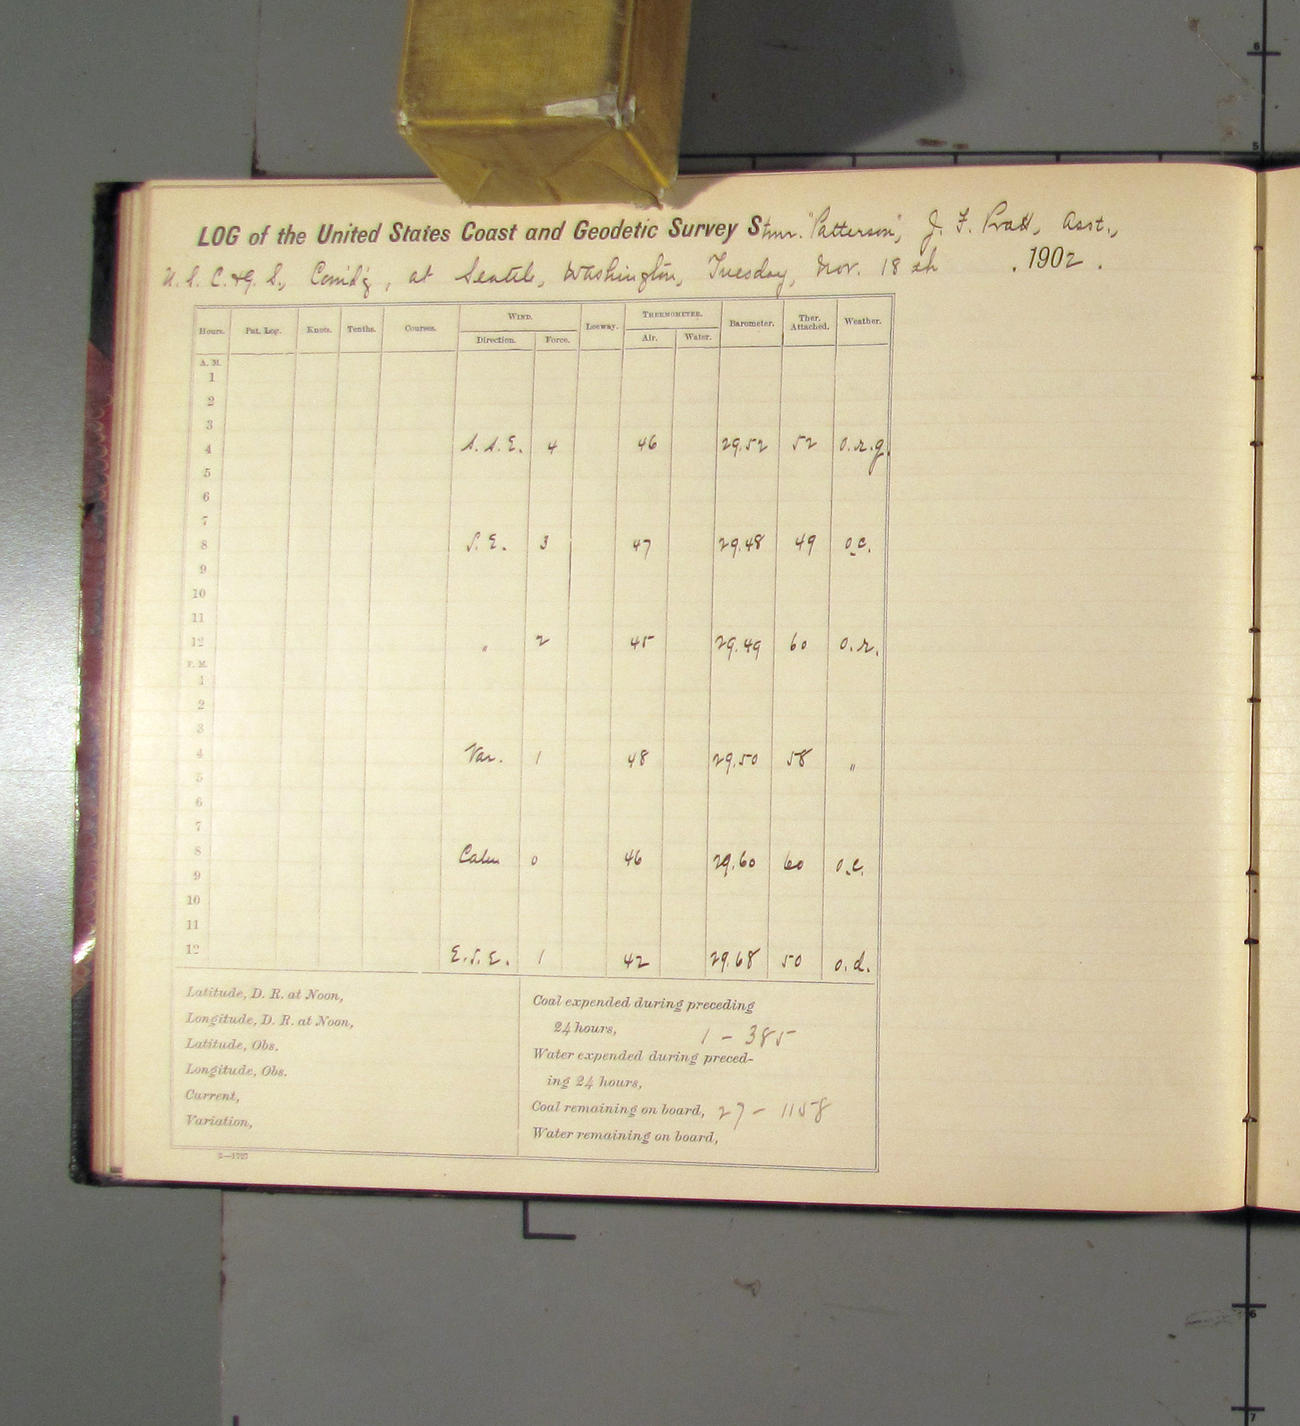 LOG of the United States Coast and Geodetic Survey Stmr. "Patterson", J. F. Pratt, Asst.,
U. S. C. & G. S., Com'd'g, at Seattle, Washington, Tuesday, Nov. 18th . 1902 .
Hours. Pat. Log. Knots. Tenths. Courses. WIND. Leeway. THERMOMETER. Barometer. Ther. Attached. Weather.
Direction. Force. Air. Water.
A. M.
1
2
3
4 S.S.E. 4 46 29.52 52 o.r.g.
5
6
7
8 S.E. 3 47 29.48 49 o.c.
9
10
11
12 " 2 45 29.49 60 o.r.
P. M.
1
2
3
4 Var. 1 48 29.50 58 "
5
6
7
8 Calm 0 46 29.60 60 o.c.
9
10
11
12 E.S.E. 1 42 29.68 50 o.d.
Latitude, D. R. at Noon,
Longitude, D. R. at Noon,
Latitude, Obs.
Longitude, Obs.
Current,
Variation,
Coal expended during preceding
24 hours, 1 - 385
Water expended during preced-
ing 24 hours,
Coal remaining on board, 27 - 1158
Water remaining on board,
6
5
6
7